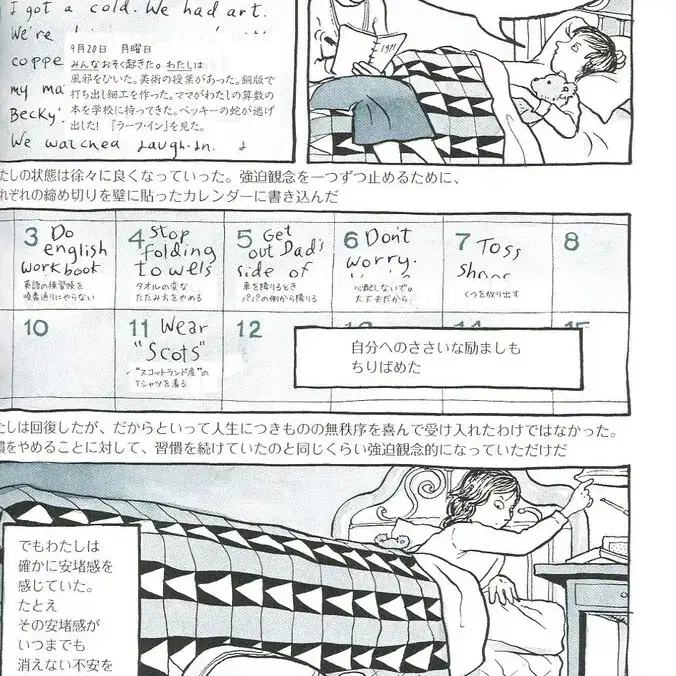 I got a cold. We had art.
We're
coppe
my ma
Becky'
We watched Laugh-In. I
9月20日 月曜日
みんなおそく起きた。わたしは
風邪をひいた。美術の授業があった。銅版で
打ち出し細工を作った。ママがわたしの算数の
本を学校に持ってきた。ベッキーの蛇が逃げ
出した! 『ラーフ・イン』を見た。
1971
たしの状態は徐々に良くなっていった。強迫観念を一つずつ止めるために、
れぞれの締め切りを壁に貼ったカレンダーに書き込んだ
3 Do
english
workbook
英語の練習帳を
たたみ方をやめる
4 Stop
folding
towels
タオルの変な
5 Get
out Dad's
side of
車を降りるとき
パパの側から降りる
6 Don't
worry.
心配しないで。
大丈夫だから
7 Toss
くつを放り出す
8
10
11 Wear
"Scots"
"スコットランド産"の
Tシャツを着る
12
自分へのささいな励ましも
ちりばめた
たしは回復したが、だからといって人生につきものの無秩序を喜んで受け入れたわけではなかった。
慣をやめることに対して、習慣を続けていたのと同じくらい強迫観念的になっていただけだ
でもわたしは
確かに安堵感を
感じていた。
たとえ
その安堵感が
いつまでも
消えない不安を